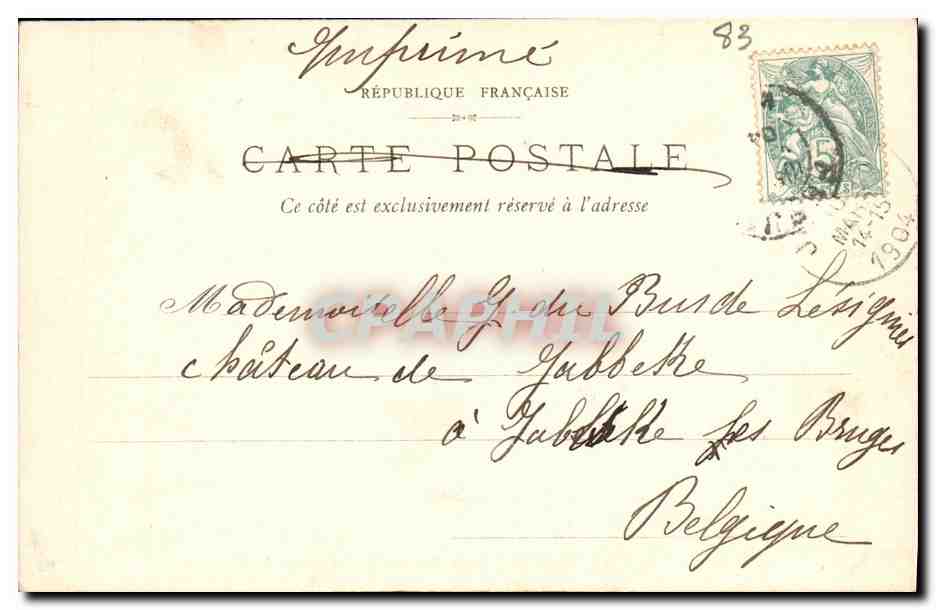 83
Imprimé
RÉPUBLIQUE FRANÇAISE
CARTE POSTALE
Ce côté est exclusivement réservé à l'adresse
5
MAR
14-15
1904
CPAPHIL
Mademoiselle G. du Bus de Lésignies
château de Jabbeke
à Jabbeke près Bruges
Belgique